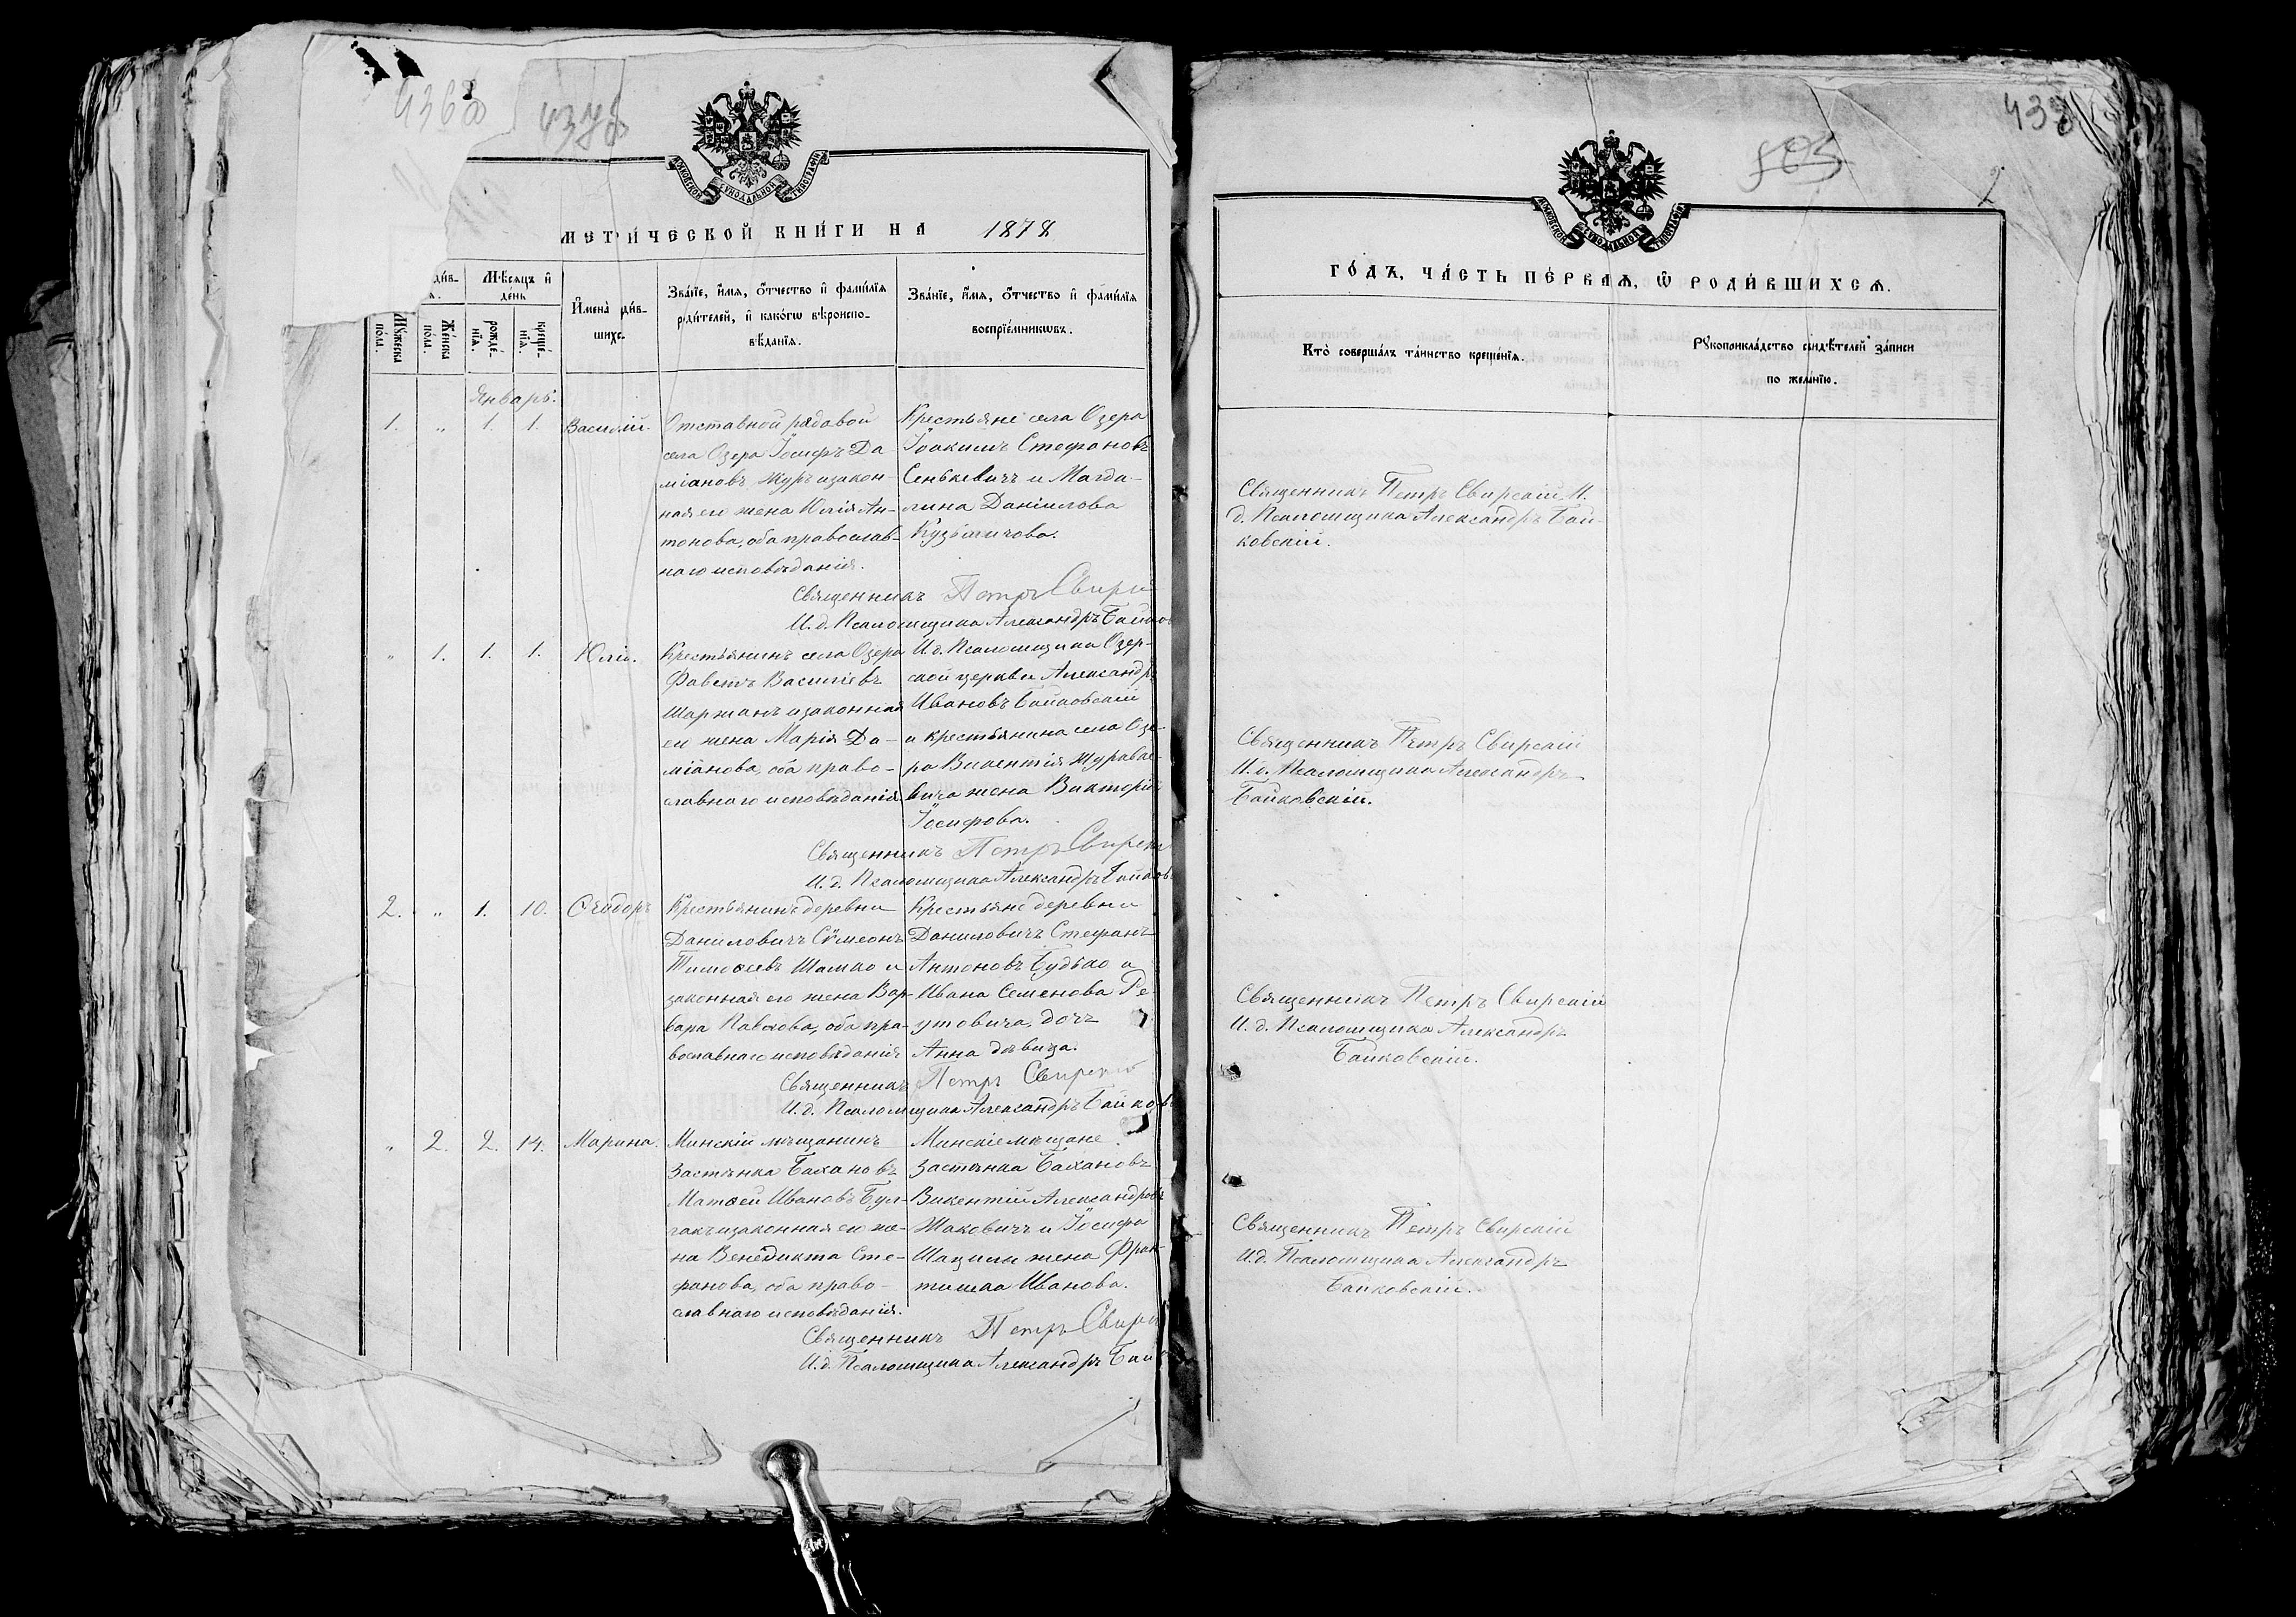 4368
4378
МОСКОВСКОЙ СѴНОДАЛЬНОЙ ТИПОГРАФІИ
МЕТРИ́ЧЕСКОЙ КНИ́ГИ НА 1878
Мѣ́сяцъ и҆ день
И҆мена̀ роди́вшихсѧ
Зва́нїе, и҆́мѧ, ѻ҆́тчество и҆ фами́лїѧ
роди́телей, и҆ како́гѡ вѣроиспо-
вѣ́данїѧ.
Зва́нїе, и҆́мѧ, ѻ҆́тчество и҆ фами́лїѧ
воспрїе́мникѡвъ.
Мꙋ́жеска по́ла.
Же́нска по́ла.
рожде́-нїѧ.
креще́-нїѧ.
Январь.
1. „ 1. 1. Василій.
Отставной рядовой
села Озера Іосифъ Да
міановъ Журъ и закон-
ная его жена Юлія Ан-
тонова, оба православ-
наго исповѣданія.
Крестьяне села Озера
Іоакимъ Стефановъ
Сенькевичъ и Магда-
лина Даніилова
Кузьмичова.
Священникъ Петръ Свирскій
И. д. Псаломщика Александръ Байков
„ 1. 1. 1. Юлія.
Крестьянинъ села Озера
Фавстъ Василіевъ
Шаржанъ и законная
его жена Марія Да-
міанова, оба право-
славнаго исповѣданія
И. д. Псаломщика Озер-
ской церкви Александръ
Ивановъ Байковскій
и крестьянина села Озе-
ра Викентія Журавле-
вича жена Викторія
Іосифова.
Священникъ Петръ Свирскі
И. д. Псаломщика Александръ Байковс
2. „ 1. 10. Ѳеодоръ
Крестьянинъ деревни
Даниловичъ Сѵмеонъ
Тимоѳеевъ Шашко и
законная его жена Вар-
вара Павлова, оба пра-
вославнаго исповѣданія
Крестьяне деревни
Даниловичъ Стефанъ
Антоновъ Будько и
Ивана Семенова Ре-
утовича, дочь
Анна дѣвица.
Священникъ Петръ Свирскій
И. д. Псаломщика Александръ Байковс
„ 2. 2. 14. Марина.
Минскій мѣщанинъ
Застѣнка Бахановъ
Матѳей Ивановъ Бул-
гакъ и законная его же-
на Венедикта Сте-
фанова, оба право-
славнаго исповѣданія.
Минскіе мѣщане
Застѣнка Бахановъ
Викентій Александровъ
Жаковичъ и Іосифа
Шацилы жена Фран-
тишка Иванова.
Священникъ Петръ Свирск
И. д. Псаломщика Александръ Бай
438
503
2
МОСКОВСКОЙ СѴНОДАЛЬНОЙ ТИПОГРАФІИ
ГО́ДЪ, ЧА́СТЬ ПЕ́РВАѦ, Ѽ РОДИ́ВШИХСѦ.
Кто̀ соверша́лъ та́инство креще́нїѧ.
Рꙋкоприкла́дство свидѣ́телей за́писи
по жела́нїю.
Священникъ Петръ Свирскій И.
д. Псаломщика Александръ Бай-
ковскій.
Священникъ Петръ Свирскій
И. д. Псаломщика Александръ
Байковскій.
Священникъ Петръ Свирскій
И. д. Псаломщика Александръ
Байковскій.
Священникъ Петръ Свирскій
И. д. Псаломщика Александръ
Байковскій.